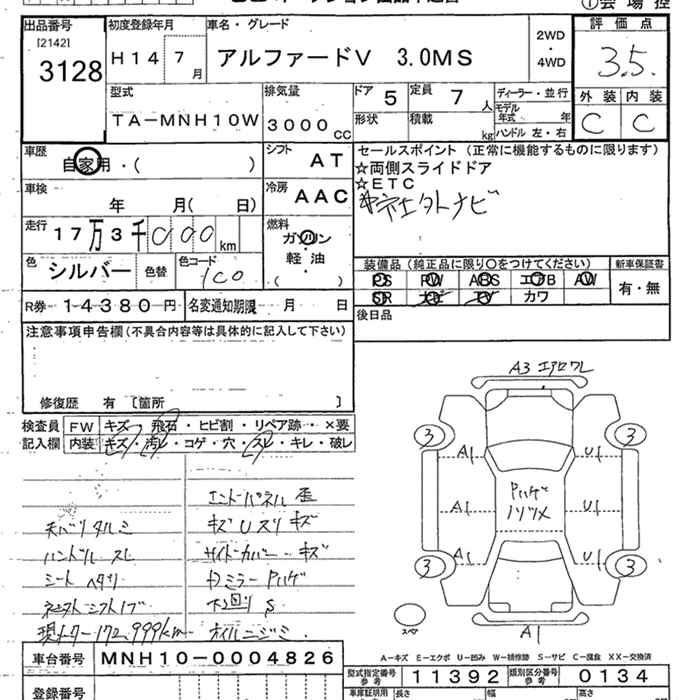 出品番号
[2142]
3128
初度登録年月
H14 7月
車名・グレード
アルファードV 3.0MS
2WD
・
4WD
評価点
3.5
外装 内装
C C
型式
TA-MNH10W
排気量
3000cc
ドア 5
定員 7人
形状
積載 kg
ディーラー・並行
モデル年式 年
ハンドル 左・右
車歴
自家用・( )
シフト AT
冷房 AAC
車検
年 月( 日)
走行 17万3千000km
燃料
ガソリン
・
軽油
( )
色 シルバー
色替
色コード 1C0
R券 14380円
名変通知期限 月 日
セールスポイント(正常に機能するものに限ります)
☆両側スライドドア
☆ETC
装備品(純正品に限り○をつけてください)
新車保証書
PS PW ABS エアB AW
SR ナビ TV カワ
有・無
後日品
注意事項申告欄(不具合内容等は具体的に記入して下さい)
修復歴 有〔箇所 〕
検査員記入欄
FW キズ・飛石・ヒビ割・リペア跡・×要
内装 キズ・汚レ・コゲ・穴・スレ・キレ・破レ
天バリタルミ
ハンドル スレ
シート ヘタリ
現メーター172,999km
エンドパネル 歪
キズ Uスリキズ
サイドカバー キズ
ドミラー Pハゲ
下回り S
オイルニジミ
A3 エアロワレ
3 3
A1 U1
Pハゲ
A1 U1
A1 U1
3 3
スペア
A1
A-キズ E-エクボ U-凹み W-補修跡 S-サビ C-腐食 XX-交換済
車台番号 MNH10-0004826
型式指定番号 参考 11392
類別区分番号 参考 0134
登録番号
車庫証明用 長さ 幅 高さ